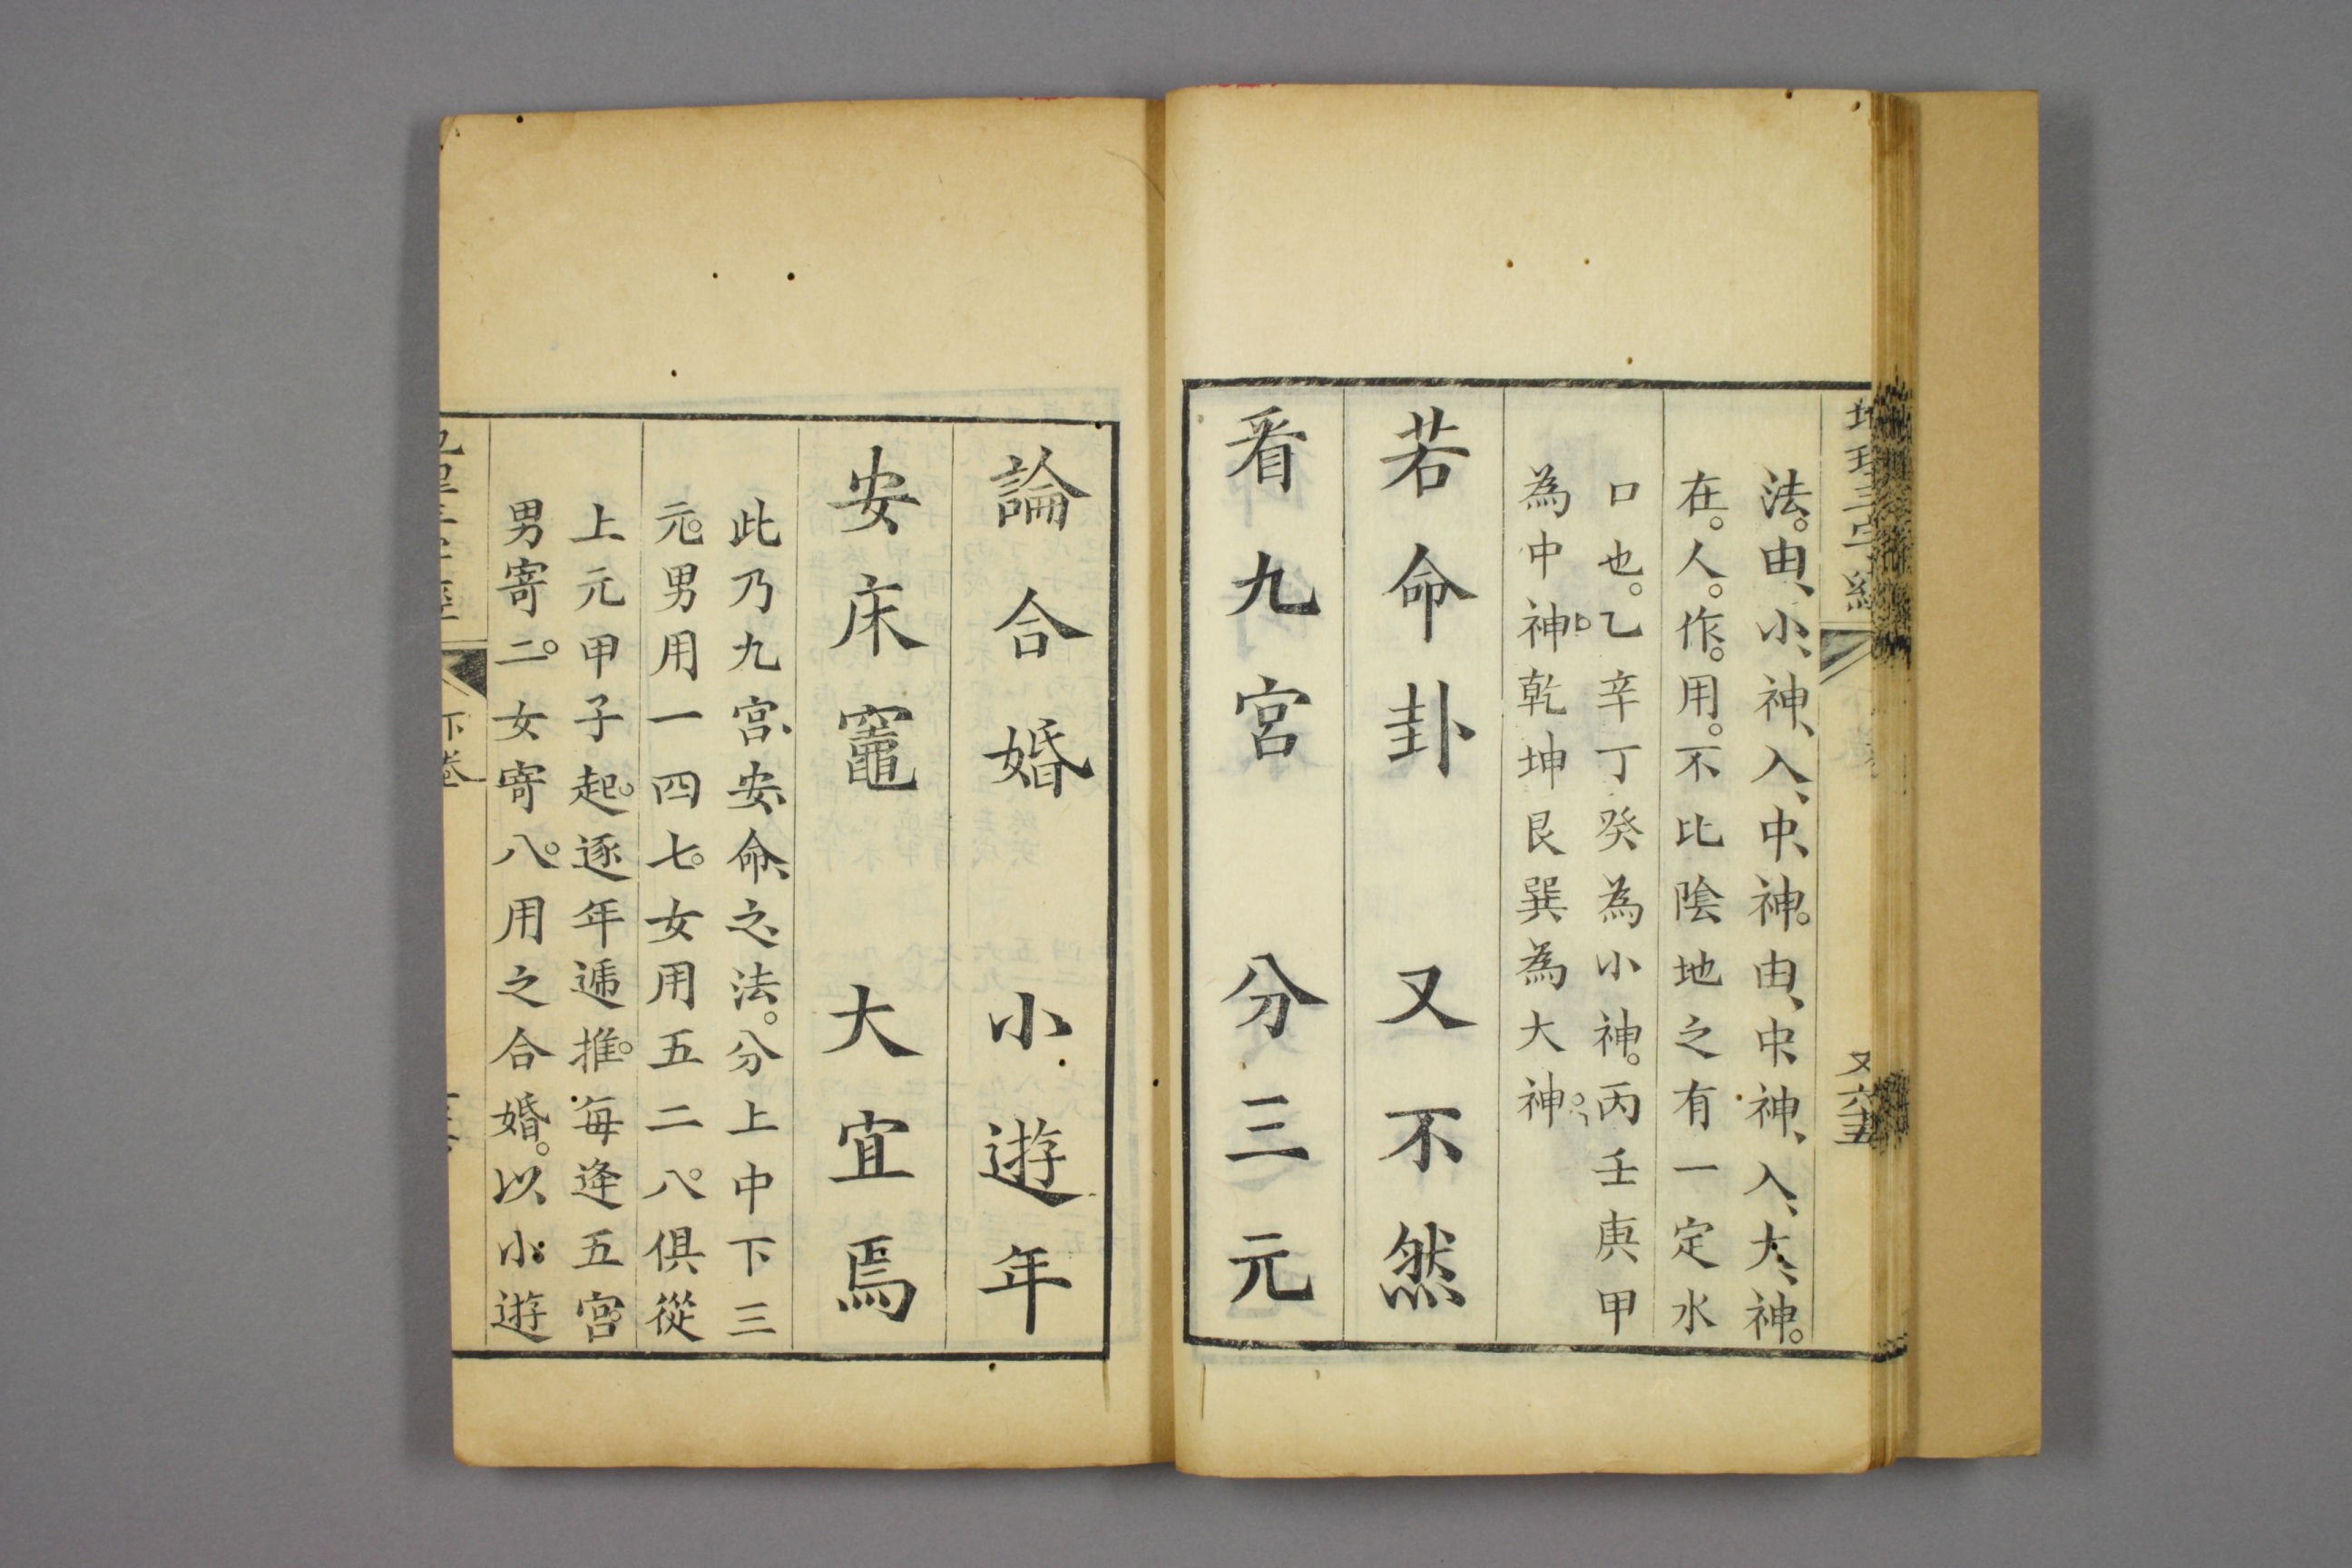 地理三字經
又六十五
法。由、小、神、入、中、神。由、中、神、入、大、神。
在。人。作。用。不比陰地之有一定水
口也。乙辛丁癸為小神。丙壬庚甲
為中神。乾坤艮巽為大神。
若命卦　又不然
看九宮　分三元
論合婚　小遊年
安床竈　大宜焉
此乃九宮、安、命、之、法。分上中下三
元。男用一四七。女用五二八。俱從
上元甲子起。逐年遞推。每逢五宮。
男寄二。女寄八。用之合婚。以小遊
下卷